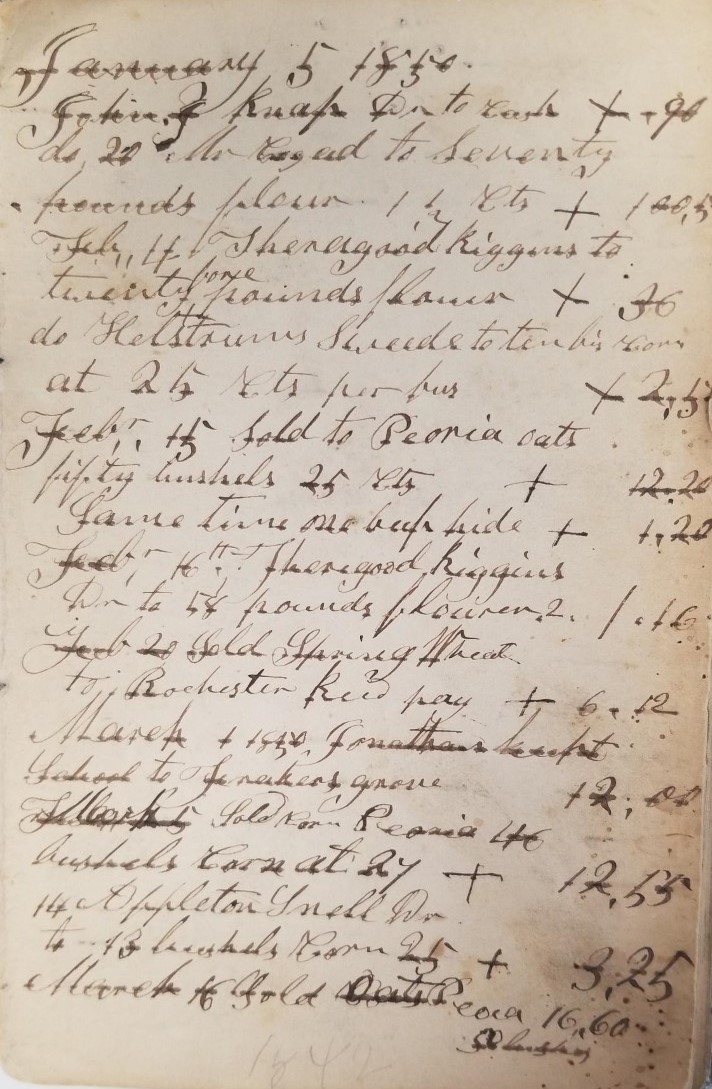 January 5 1850.
John F Knap Dr to Cash + .90
do, 20 Mr to Seventy
pounds flour 1 1/2 Cts + 1 00,5
Feb,, 4. Theregood kiggins to
twenty forre pounds flower + 36
do Helstrums Sweede to ten bu corn
at 25 Cts per bus + 2,5
Febr, 15 Sold to Peoria oats
fifty bushels 25 Cts + 12.20
Same time one buf hide + 1.20
Febr, 16th, Theregood kiggins
Dr to 58 pounds flourer 2. 1.16
Feb 20 Sold Spring Wheat
to Rochester Recd pay + 6.12
March 1 1850, Jonathan kept
School to Frakers grove 12,00
March 5 Sold korn Peoria 46
bushels Corn at 27 + 12,55
14 Appleton Snell Dr
to 13 bushels Corn 25 + 3,25
March 16 Sold Oats Peoia 16,60
50 bushes
1842